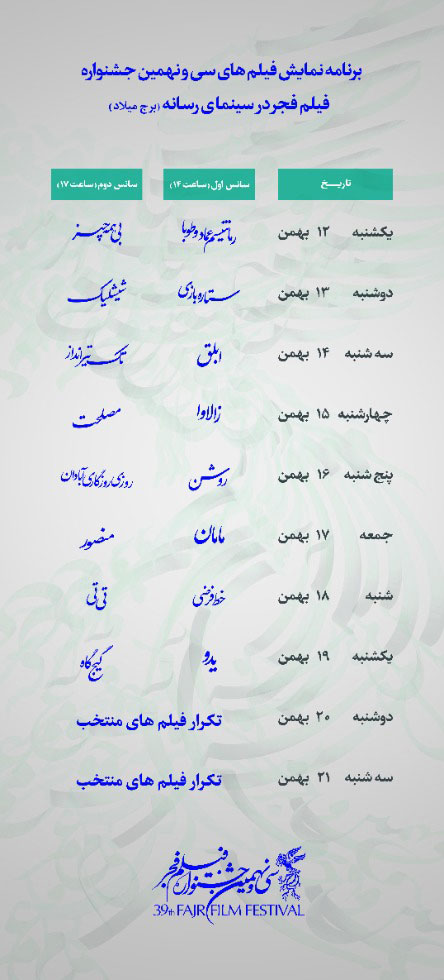 برنامه نمایش فیلم های سی و نهمین جشنواره
فیلم فجر در سینمای رسانه (برج میلاد)
تاریـــخ سانس اول (ساعت ۱۴) سانس دوم (ساعت ۱۷)
یکشنبه ۱۲ بهمن رمانتیسم عماد و طوبا بی همه چیز
دوشنبه ۱۳ بهمن ستاره بازی شیشلیک
سه شنبه ۱۴ بهمن ابلق تک تیرانداز
چهارشنبه ۱۵ بهمن زالاوا مصلحت
پنج شنبه ۱۶ بهمن روشن روزی روزگاری آبادان
جمعه ۱۷ بهمن مامان منصور
شنبه ۱۸ بهمن خط فرضی تی تی
یکشنبه ۱۹ بهمن یدو گیج گاه
دوشنبه ۲۰ بهمن تکرار فیلم های منتخب
سه شنبه ۲۱ بهمن تکرار فیلم های منتخب
سی و نهمین جشنواره فیلم فجر
39th FAJR FILM FESTIVAL